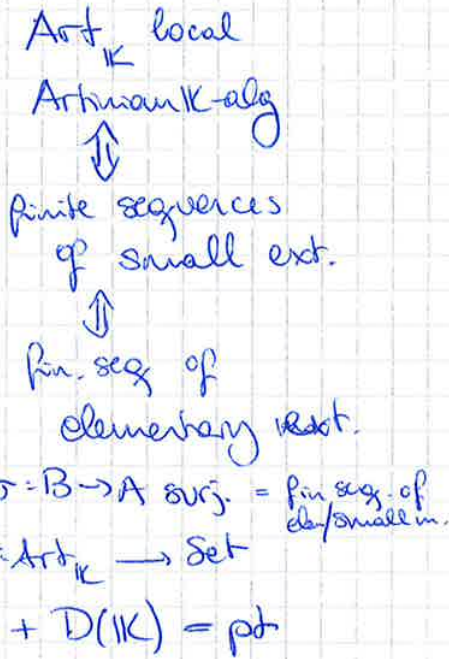 Art_𝕂 local
Artinian 𝕂-alg
⇕
finite sequences
of small ext.
⇕
fin. seq of
elementary ext.
σ: B → A surj. = fin seq. of
elem/small m.
: Art_𝕂 → Set
+ D(𝕂) = pt